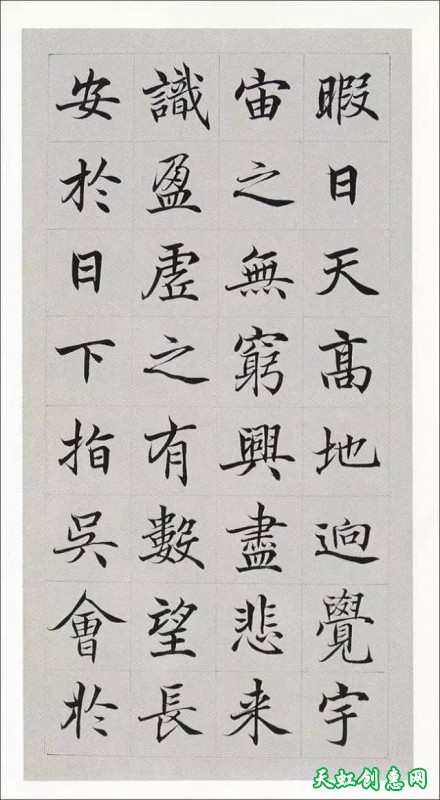 暇日天高地迥覺宇
宙之無窮興盡悲来
識盈虛之有數望長
安於日下指吳會於
天虹创惠网